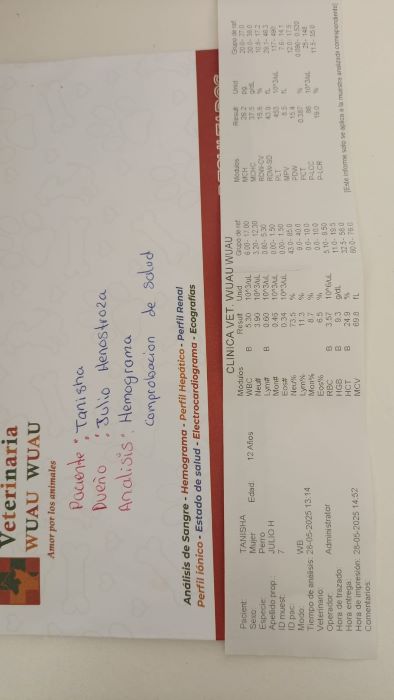 Veterinaria
WUAU WUAU
Amor por los animales
Paciente : Tanisha
Dueño : Julio Henostroza
Analisis : Hemograma
Comprobacion de salud
Análisis de Sangre - Hemograma - Perfil Hepático - Perfil Renal
Perfil Iónico - Estado de salud - Electrocardiograma - Ecografías
CLINICA VET. WUAU WUAU
Pacient: TANISHA
Sexo: Mujer Edad: 12 Años
Especie: Perro
Apellido prop. JULIO H
ID muest: 7
ID pac:
Modo: WB
Tiempo de análisis: 28-05-2025 13:14
Veterinario:
Operador: Administrator
Hora de trazado:
Hora entrega:
Hora de impresión: 28-05-2025 14:52
Comentarios:
Módulos Result Unid. Grupo de ref
WBC B 5.30 10^3/uL 6.00- 17.00
Neu# 3.90 10^3/uL 3.20- 12.30
Lym# B 0.60 10^3/uL 0.80- 5.30
Mon# 0.46 10^3/uL 0.00- 1.50
Eos# 0.34 10^3/uL 0.00- 1.50
Neu% 73.5 % 43.0- 85.0
Lym% 11.3 %
Mon% 8.7 % 0.0- 10.0
Eos% 6.5 % 0.0- 10.0
RBC B 3.57 10^6/uL 5.10- 8.50
HGB B 9.3 g/dL 11.0- 19.5
HCT B 24.9 % 32.5- 58.0
MCV 69.8 fL 60.0- 76.0
Módulos Result Unid. Grupo de ref
MCH 26.2 pg 20.0- 27.0
MCHC 37.5 g/dL 30.0- 38.0
RDW-CV 15.6 %
RDW-SD 43.0 fL
PLT 453 10^3/uL 117- 490
MPV 8.5 fL 7.6- 14.1
PDW 15.4 12.0- 17.5
PCT 0.387 % 0.090- 0.520
P-LCC 86 10^3/uL 25- 148
P-LCR 19.0 %
[Este informe solo se aplica a la muestra analizada correspondiente]